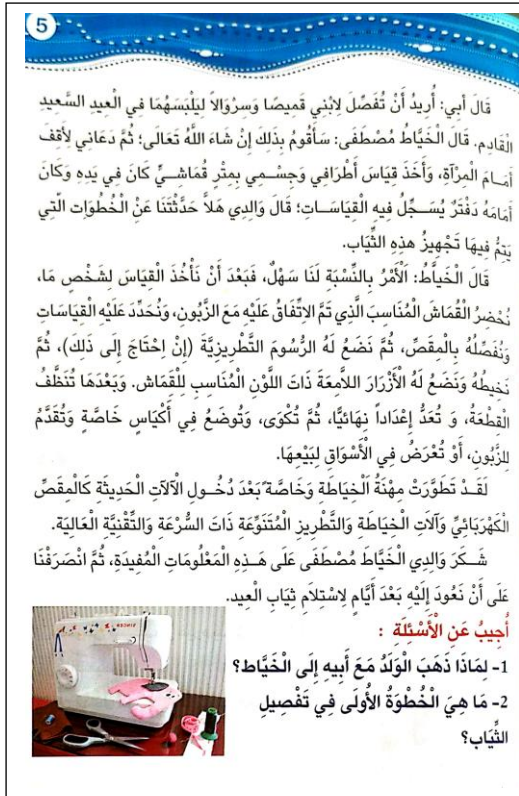 5
قَالَ أبي: أُرِيدُ أَنْ تُفَصِّلَ لِابْنِي قَمِيصًا وَسِرْوَالاً لِيَلْبَسَهُمَا فِي الْعِيدِ السَّعِيدِ
الْقَادِمِ. قَالَ الْخَيَّاطُ مُصْطَفَى: سَأَقُومُ بِذَلِكَ إِنْ شَاءَ اللَّهُ تَعَالَى؛ ثُمَّ دعَانِي لِأَقِفَ
أَمَـامَ الْمِرْآةِ، وَأَخَذَ قِيَاسَ أَطْرَافِي وَجِسْـمِي بِمِتْرٍ قُمَاشـيٍّ كَانَ فِي يَدِهِ وَكَانَ
أَمَامَهُ دَفْتَرٌ يُسَـجِّلُ فِيهِ الْقِيَاسَـاتِ؛ قَالَ وَالِدِي هَلاَّ حَدَّثْتَنَا عَنْ الْخُطُوَاتِ الَّتِي
يَتِمُّ فِيهَا تَجْهِيزُ هذِهِ الثِّيَابِ.
قَالَ الْخَياَّطُ: اَلْأَمْرُ بِالنِّسْبَةِ لَنَا سَهْلٌ، فَبَعْدَ أَنْ نَأْخُذَ الْقِيَاسَ لِشَخْصٍ مَا،
نُحْضِرُ الْقُمَاشَ الْمُنَاسِبَ الَّذِي تَمَّ الاِتِّفَاقُ عَلَيْهِ مَعَ الزَّبُونِ، وَنُحَدِّدَ عَلَيْهِ الْقِيَاسَاتِ
وَنُفَصِّلُهُ بِالْمِقَصِّ، ثُمَّ نَضَعُ لَهُ الرُّسُومَ التَّطْرِيزِيَّةَ (إِنْ اِحْتَاجَ إِلَى ذلِكَ)، ثُمَّ
نَخِيطُهُ وَنَضَعُ لَهُ الْأَزْرَارَ اللاَّمِعَةَ ذَاتَ اللَّوْنِ الْمُنَاسِبِ لِلْقُمَاشِ. وَبَعْدَهَا تُنَظَّفُ
الْقِطْعَةُ، وَ تُعَدُّ إِعْدَاداً نِهَائِيًّا، ثُمَّ تُكْوَى، وَتُوضَعُ فِي أَكْيَاسٍ خَاصَّةٍ وَتُقَدَّمُ
لِلزَّبُونِ، أَوْ تُعْرَضُ فِي الْأَسْوَاقِ لِبَيْعِهَا.
لَقَـدْ تَطَوَّرَتْ مِهْنَةُ الْخِيَاطَةِ وَخَاصَّةً بَعْدَ دُخُـولِ الْآلَاتِ الْحَدِيثَةِ كَالْمِقَصِّ
الْكَهْرَبَائِيِّ وَآلَاتِ الْخِيَاطَةِ وَالتَّطْرِيزِ الْمُتَنَوِّعَةِ ذَاتَ السُّرْعَةِ وَالتِّقْنِيَّةِ الْعَالِيَةِ.
شَـكَرَ وَالِدِي الْخَيَّاطَ مُصْطَفَى عَلَى هَـذِهِ الْمَعْلُومَاتِ الْمُفِيدَةِ، ثُمَّ انْصَرَفْنَا
عَلَى أَنْ نَعُودَ إِلَيْهِ بَعْدَ أَيَّامٍ لِاسْتِلاَمِ ثِيَابِ الْعِيدِ.
أُجِيبُ عَنِ الْأَسْئِلَةِ :
1- لِمَاذَا ذَهَبَ الْوَلَدُ مَعَ أَبِيهِ إِلَى الْخَيَّاط؟
2- مَا هِيَ الْخُطْوَةُ الأُولَى فِي تَفْصِيلِ
الثِّيَاب؟